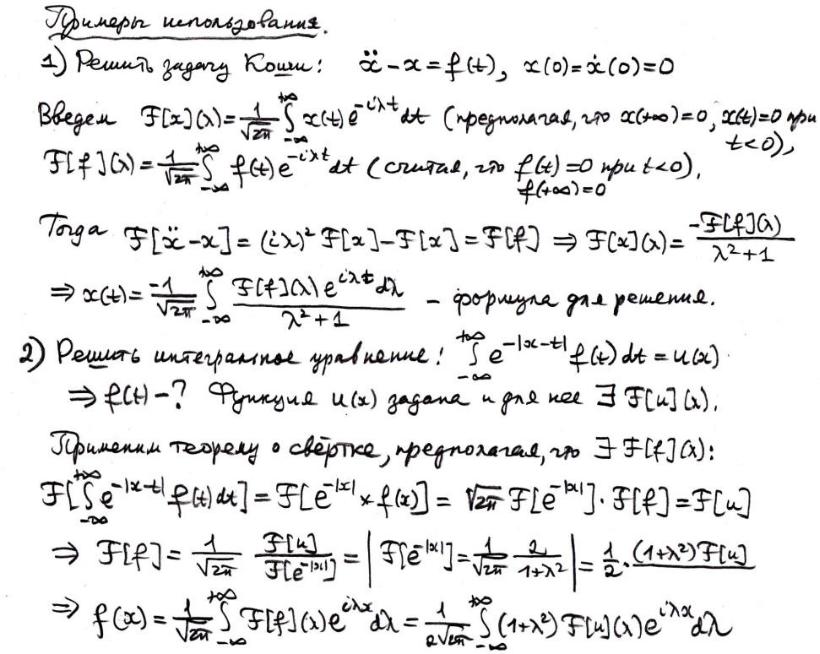 Примеры использования.
1) Решить задачу Коши: ẍ − x = f(t), x(0) = ẋ(0) = 0
Введем F[x](λ) = 1/√2π ∫_{-∞}^{+∞} x(t) e^{-iλt} dt (предполагая, что x(+∞) = 0, x(t) = 0 при t < 0),
F[f](λ) = 1/√2π ∫_{-∞}^{+∞} f(t) e^{-iλt} dt (считая, что f(t) = 0 при t < 0), f(+∞) = 0
Тогда F[ẍ − x] = (iλ)² F[x] − F[x] = F[f] ⇒ F[x](λ) = −F[f](λ) / λ² + 1
⇒ x(t) = −1/√2π ∫_{-∞}^{+∞} F[f](λ) e^{iλt} dλ / λ² + 1 – формула для решения.
2) Решить интегральное уравнение: ∫_{-∞}^{+∞} e^{-|x-t|} f(t) dt = u(x)
⇒ f(t) – ? Функция u(x) задана и для нее ∃ F[u](λ).
Применим теорему о свёртке, предполагая, что ∃ F[f](λ):
F[∫_{-∞}^{+∞} e^{-|x-t|} f(t) dt] = F[e^{-|x|} * f(x)] = √2π F[e^{-|x|}] · F[f] = F[u]
⇒ F[f] = 1/√2π F[u]/F[e^{-|x|}] = | F[e^{-|x|}] = 1/√2π 2/1+λ² | = 1/2 · (1+λ²) F[u]
⇒ f(x) = 1/√2π ∫_{-∞}^{+∞} F[f](λ) e^{iλx} dλ = 1/2√2π ∫_{-∞}^{+∞} (1+λ²) F[u](λ) e^{iλx} dλ